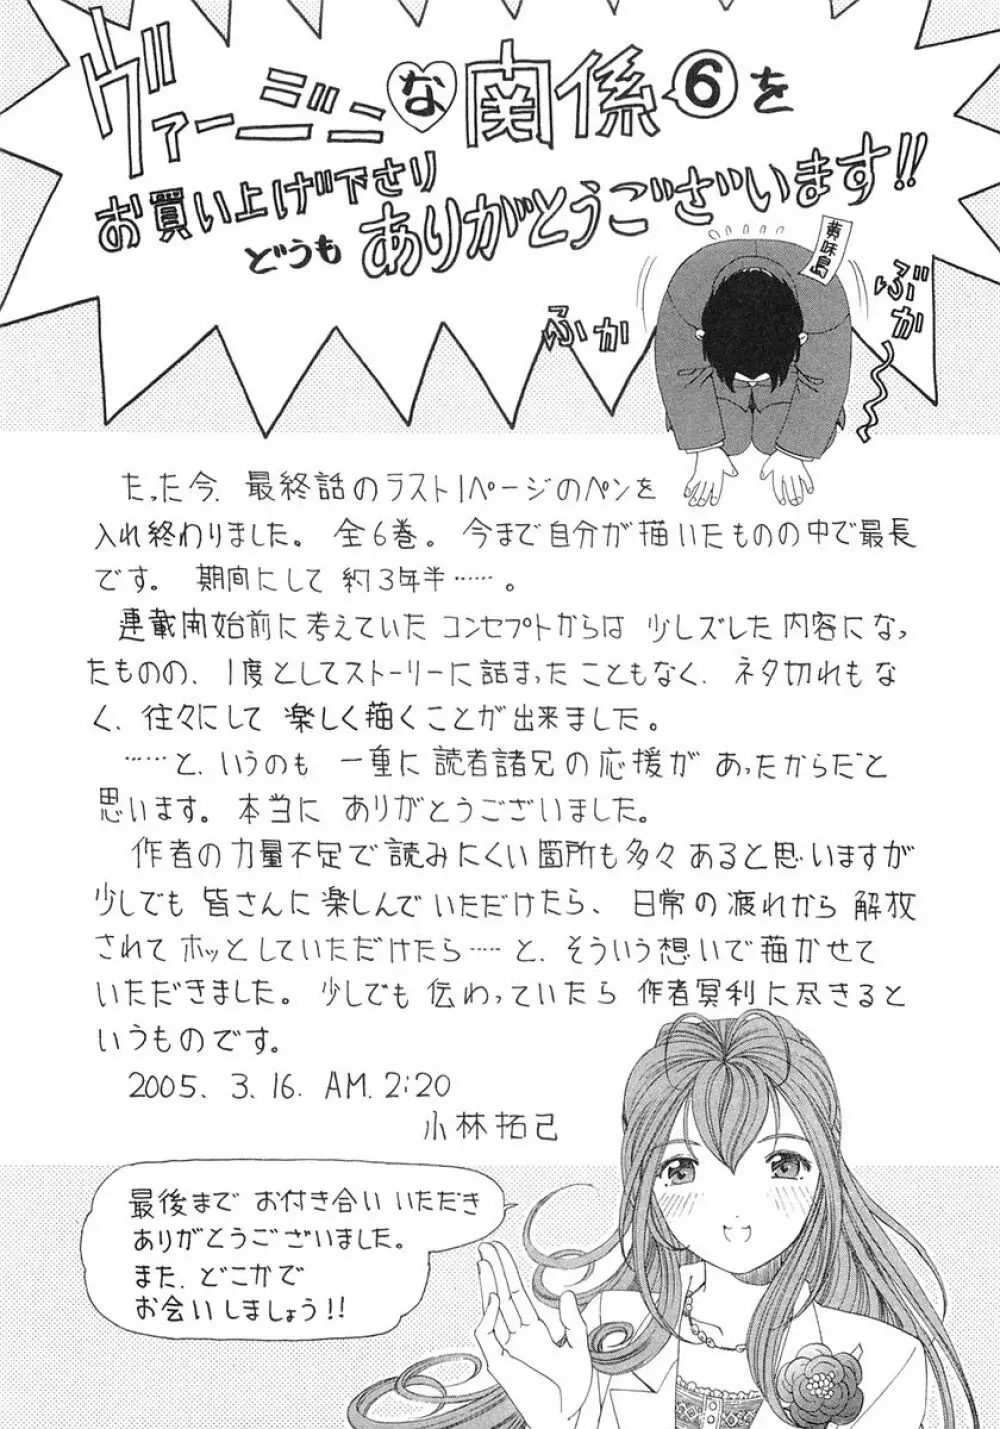 ヴァージニな関係⑥を
お買い上げ下さり
どうもありがとうございます!!
黄味島
ぶか
ぶか
たった今、最終話のラスト1ページのペンを
入れ終わりました。全6巻。今まで自分が描いたものの中で最長
です。期間にして約3年半……。
連載開始前に考えていたコンセプトからは少しズレした内容になっ
たものの、1度としてストーリーに詰まったこともなく、ネタ切れもな
く、往々にして楽しく描くことが出来ました。
……と、いうのも一重に読者諸兄の応援があったからだと
思います。本当にありがとうございました。
作者の力量不足で読みにくい箇所も多々あると思いますが
少しでも皆さんに楽しんでいただけたら、日常の疲れから解放
されてホッとしていただけたら……と、そういう想いで描かせて
いただきました。少しでも伝わっていたら作者冥利に尽きると
いうものです。
2005. 3. 16. AM. 2:20
小林拓己
最後までお付き合いいただき
ありがとうございました。
また、どこかで
お会いしましょう!!